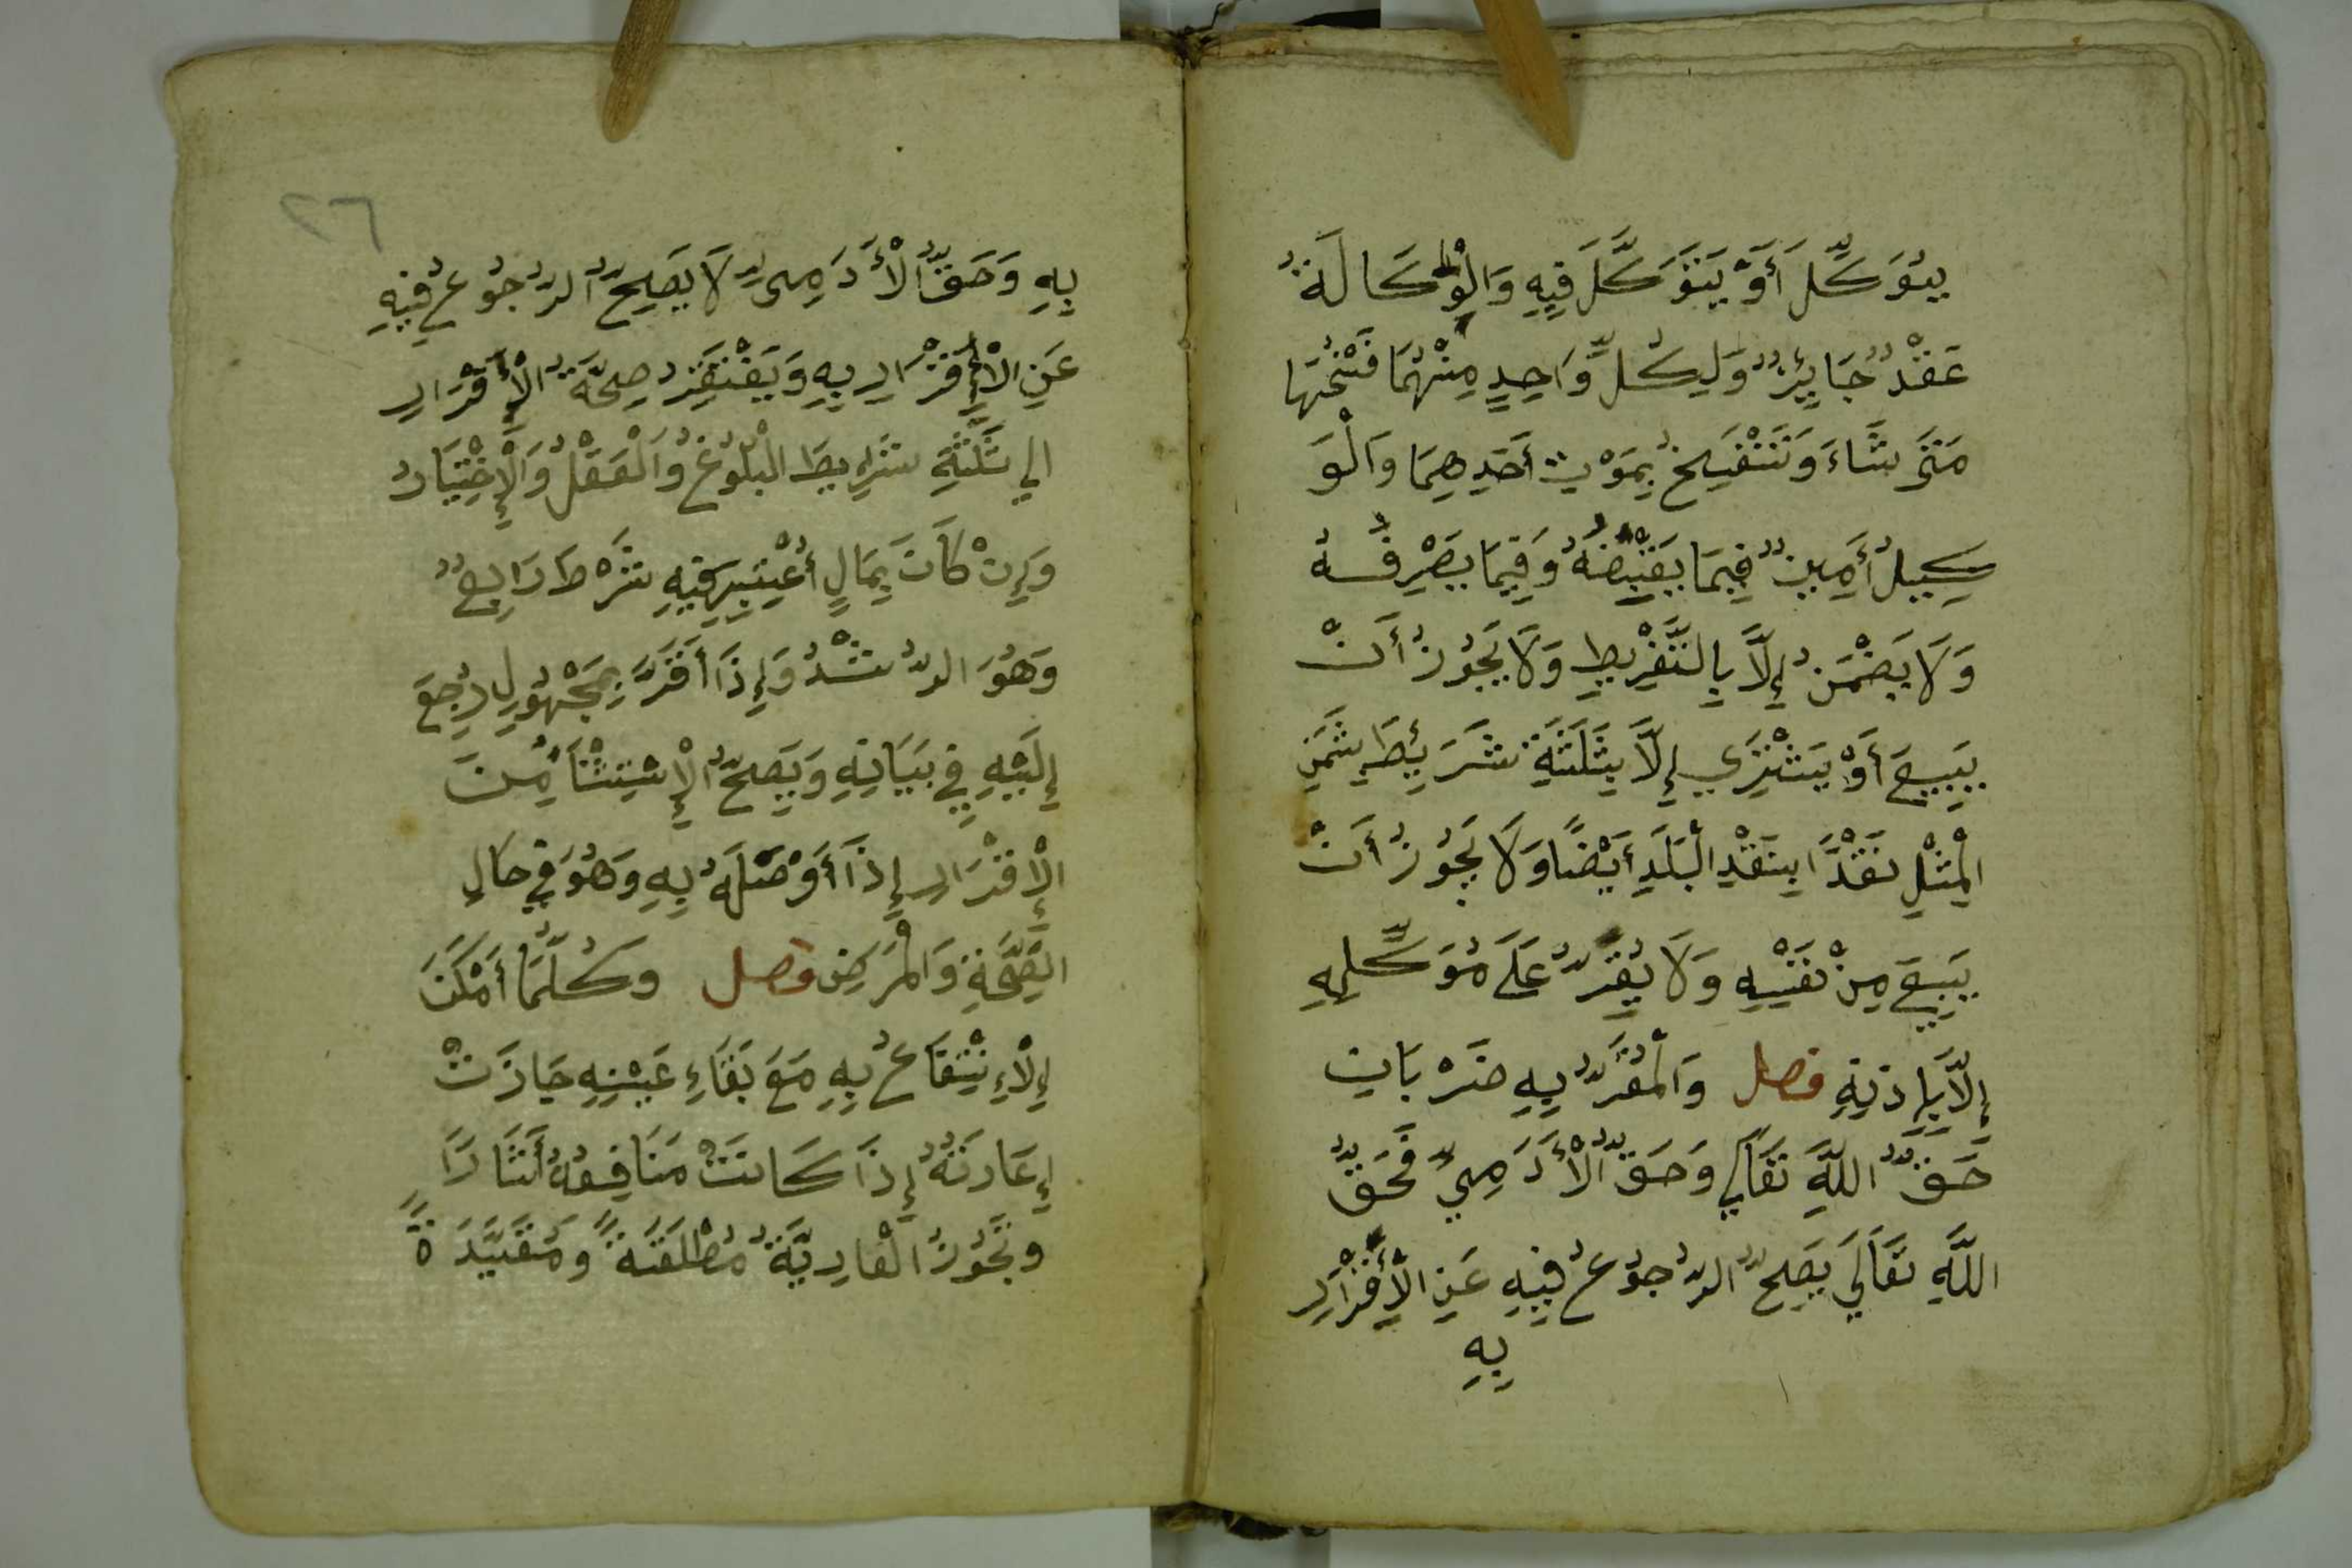 يُوَكِّلَ أَوْ يَتَوَكَّلَ فِيهِ وَالْوِكَالَةُ
عَقْدٌ جَايِٕزٌ وَلِكُلِّ وَّاحِدٍ مِنْهُمَا فَسْخُهَا
مَتَى شَاءَ وَتَنْفَسِخُ بِمَوْتِ أَحَدِهِمَا وَالْوَ
كِيلُ أَمِينٌ فِيمَا يَقْبِضُهُ وَفِيمَا يَصْرِفُهُ
وَلَا يَضْمَنُ إِلَّا بِالتَّفْرِيطِ وَلَا يَجُوزُ أَنْ
يَبِيعَ أَوْ يَشْتَرِي إِلَّا بِثَلَثَةِ شَرَيِٕطَ بِثَمَنِ
الْمِثْلِ نَقْدًا بِنَقْدِ الْبَلَدِ أَيْضًا وَلَا يَجُوزُ أَنْ
يَبِيعَ مِنْ نَفْسِهِ وَلَا يُقِرُّ عَلَى مُوَكِّلِهِ
إِلَّا بِإِذْنِهِ فصل وَالْمُقَرُّ بِهِ ضَرْبَانِ
حَقُّ اللَّهِ تَعَالَى وَحَقُّ الْأَدَمِيِّ فَحَقُّ
اللَّهِ تَعَالَى يَصِحُّ الرُّجُوعُ فِيهِ عَنِ الْإِقْرَارِ
بِهِ
٢٦
بِهِ وَحَقُّ الْأَدَمِىِّ لَا يَصِحُّ الرُّجُوعُ فِيهِ
عَنِ الْإِقْرَارِ بِهِ وَيَفْتَقِرُ صِحَّةُ الْإِقْرَارِ
الي ثَلَثَةِ شَرَايِطَ الْبُلُوغُ وَالْعَقْلُ وَالْإِخْتِيَارُ
وَإِنْ كَانَ بِمَالٍ أُعْتُبِرَ فِيهِ شَرْطٌ رَابِعٌ
وَهُوَ الرُّشْدُ وَإِذَا أَقَرَّ بِمَجْهُولٍ رُجِعَ
إِلَيْهِ فِي بَيَانِهِ وَيَصِحُّ الْإِسْتِثْنَآءُ مِنَ
الْإِقْرَارِ إِذَا أَوْصَلَهُ بِهِ وَهُوَ فِي حَالِ
الصِّحَّةِ وَالْمَرَضِ فصل وَكُلَّمَا أَمْكَنَ
الْإِنْتِفَاعُ بِهِ مَعَ بَقَاءِ عَيْنِهِ جَازَتْ
إِعَارَتُهُ إِذَا كَانَتْ مَنَافِعُهُ أَثَارًا
وَتَجُوزُ الْعَارِيَّةُ مُطْلَقَةً وَمُقَيَّدَةً